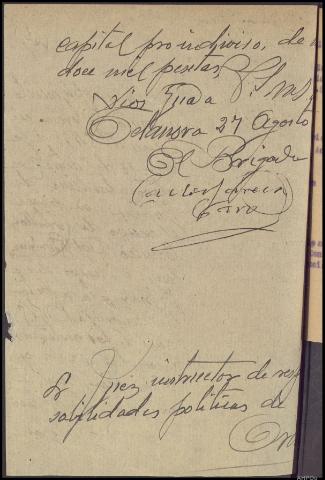 capital proindiviso, de
doce mil pesetas,
Dios Guarde a V.S. ms.
Celanova 27 Agosto
El Brigada
Carlos Garcia
Sr. Juez instructor de resp
sabilidades políticas de
Or